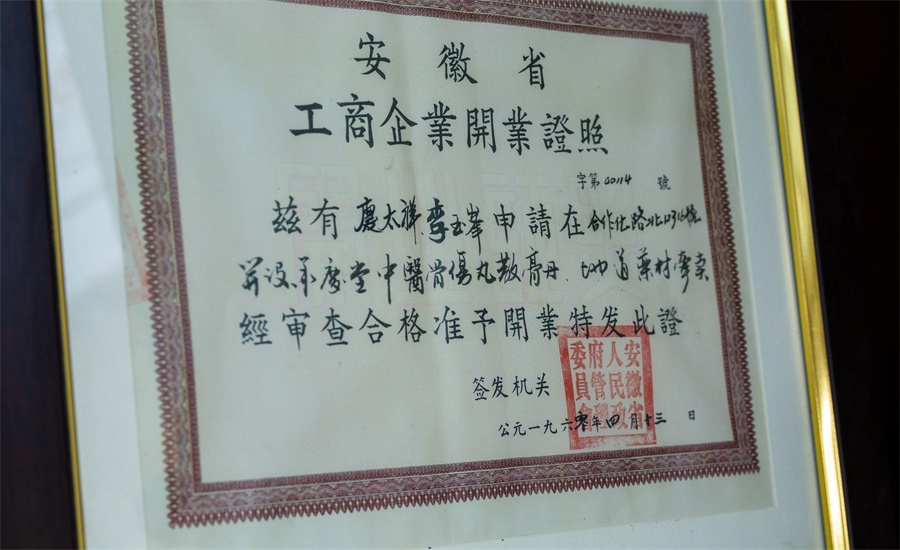 安徽省
工商企業開業證照
字第 00114 號
茲有 慶太祥 李玉峯 申請在 合作化路北口316號
开设 慶堂中醫骨傷丸散膏丹、地道藥材零卖
經審查合格准予開業特发此證
签发机关
公元一九六零年四月十三日
安徽省人民政府管理委員會